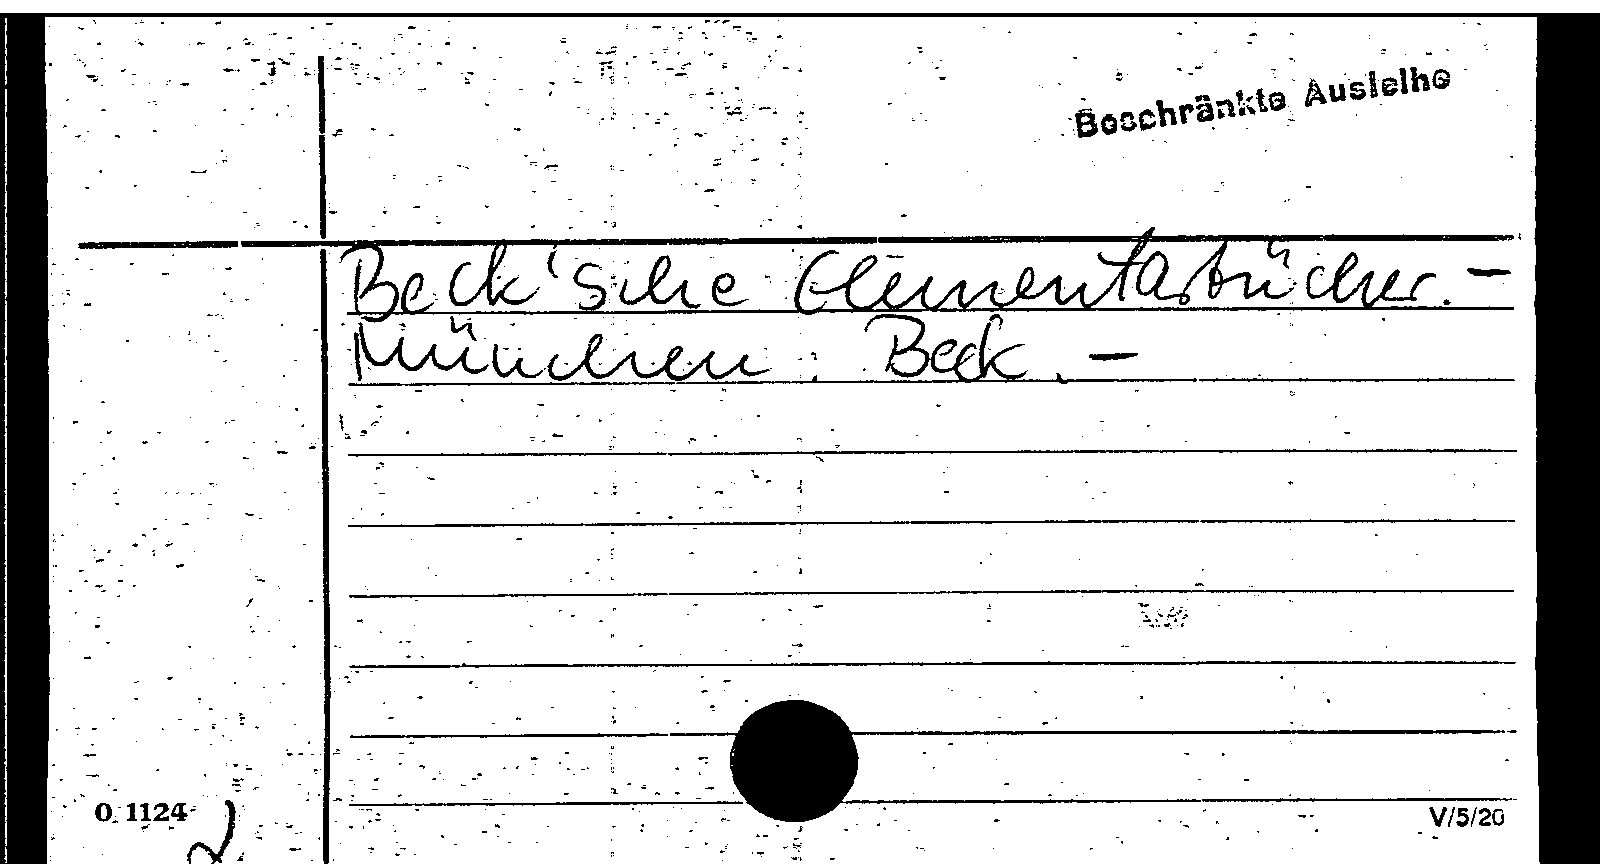 Beschränkte Ausleihe
Beck'sche Elementarbücher. –
München : Beck. –
0 1124
V/5/20